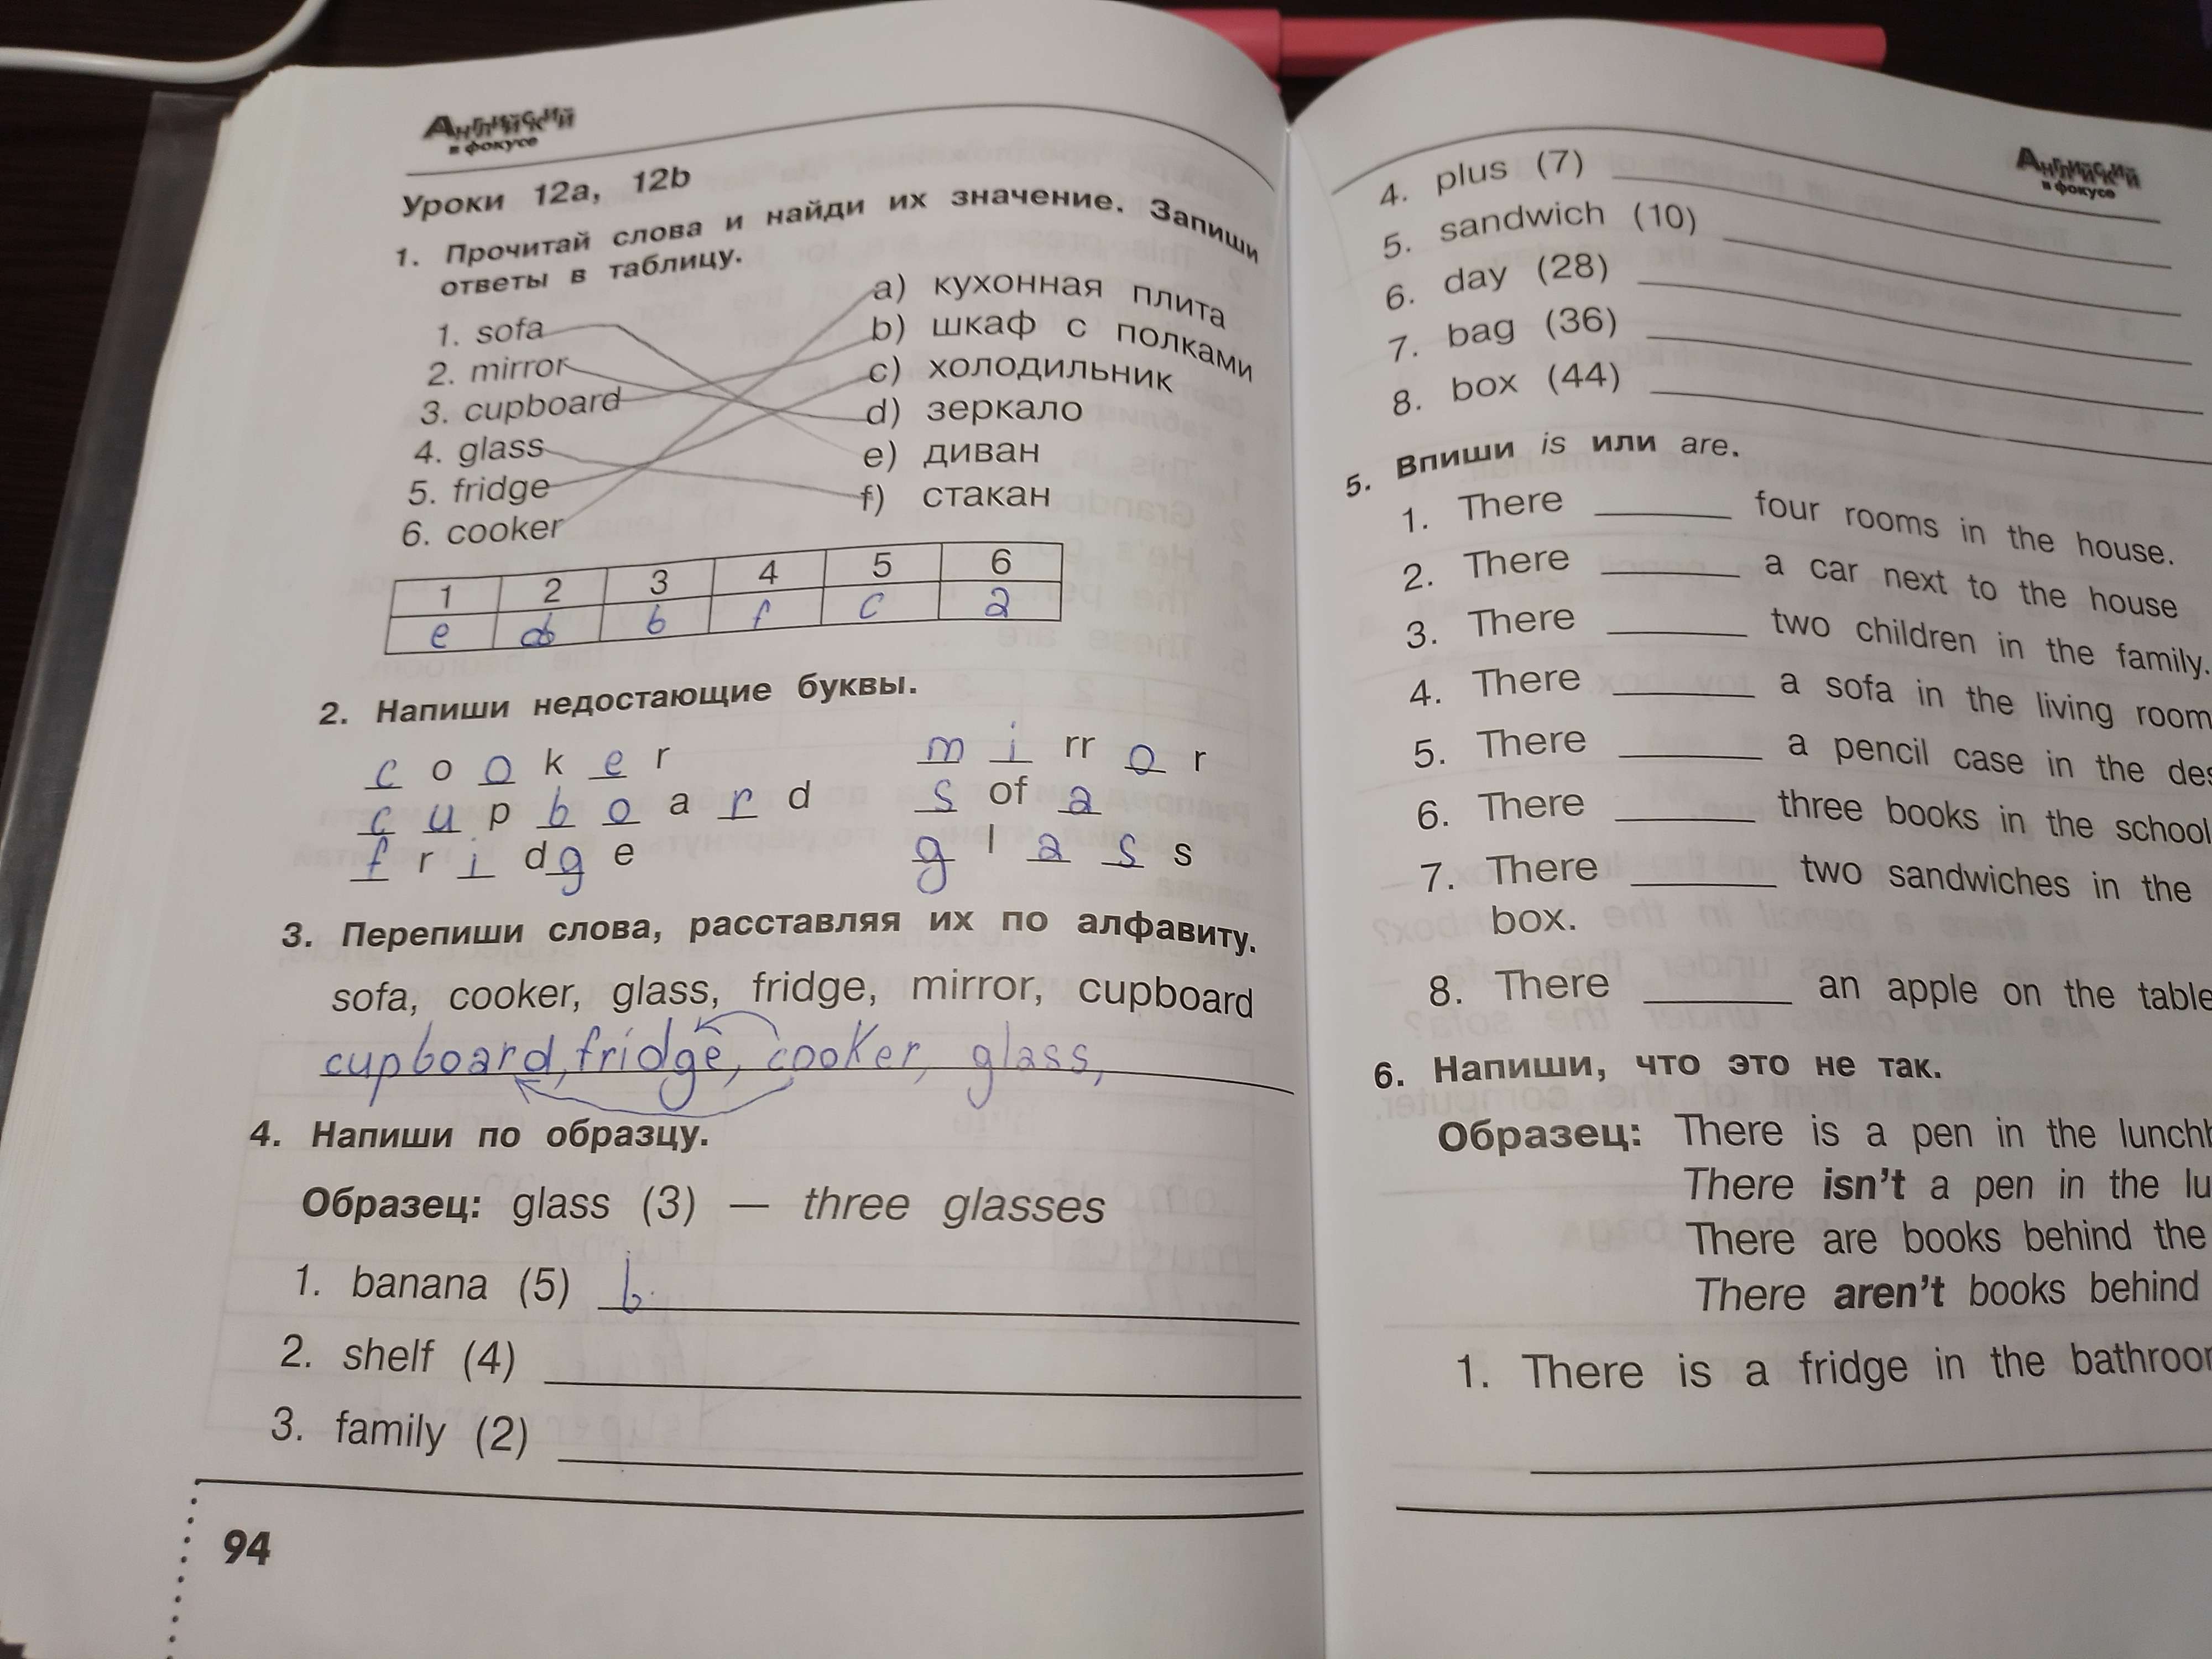 Английский
в фокусе
Уроки 12a, 12b
1. Прочитай слова и найди их значение. Запиши
ответы в таблицу.
1. sofa
2. mirror
3. cupboard
4. glass
5. fridge
6. cooker
a) кухонная плита
b) шкаф с полками
c) холодильник
d) зеркало
e) диван
f) стакан
1 2 3 4 5 6
e d b f c a
2. Напиши недостающие буквы.
c o o k e r
c u p b o a r d
f r i d g e
m i rr o r
s of a
g l a s s
3. Перепиши слова, расставляя их по алфавиту.
sofa, cooker, glass, fridge, mirror, cupboard
cupboard, fridge, cooker, glass,
4. Напиши по образцу.
Образец: glass (3) — three glasses
1. banana (5) b
2. shelf (4)
3. family (2)
94
Английский
в фокусе
4. plus (7)
5. sandwich (10)
6. day (28)
7. bag (36)
8. box (44)
5. Впиши is или are.
1. There ______ four rooms in the house.
2. There ______ a car next to the house
3. There ______ two children in the family.
4. There ______ a sofa in the living room
5. There ______ a pencil case in the des
6. There ______ three books in the school
7. There ______ two sandwiches in the
box.
8. There ______ an apple on the table
6. Напиши, что это не так.
Образец: There is a pen in the lunch
There isn't a pen in the lu
There are books behind the
There aren't books behind
1. There is a fridge in the bathroo